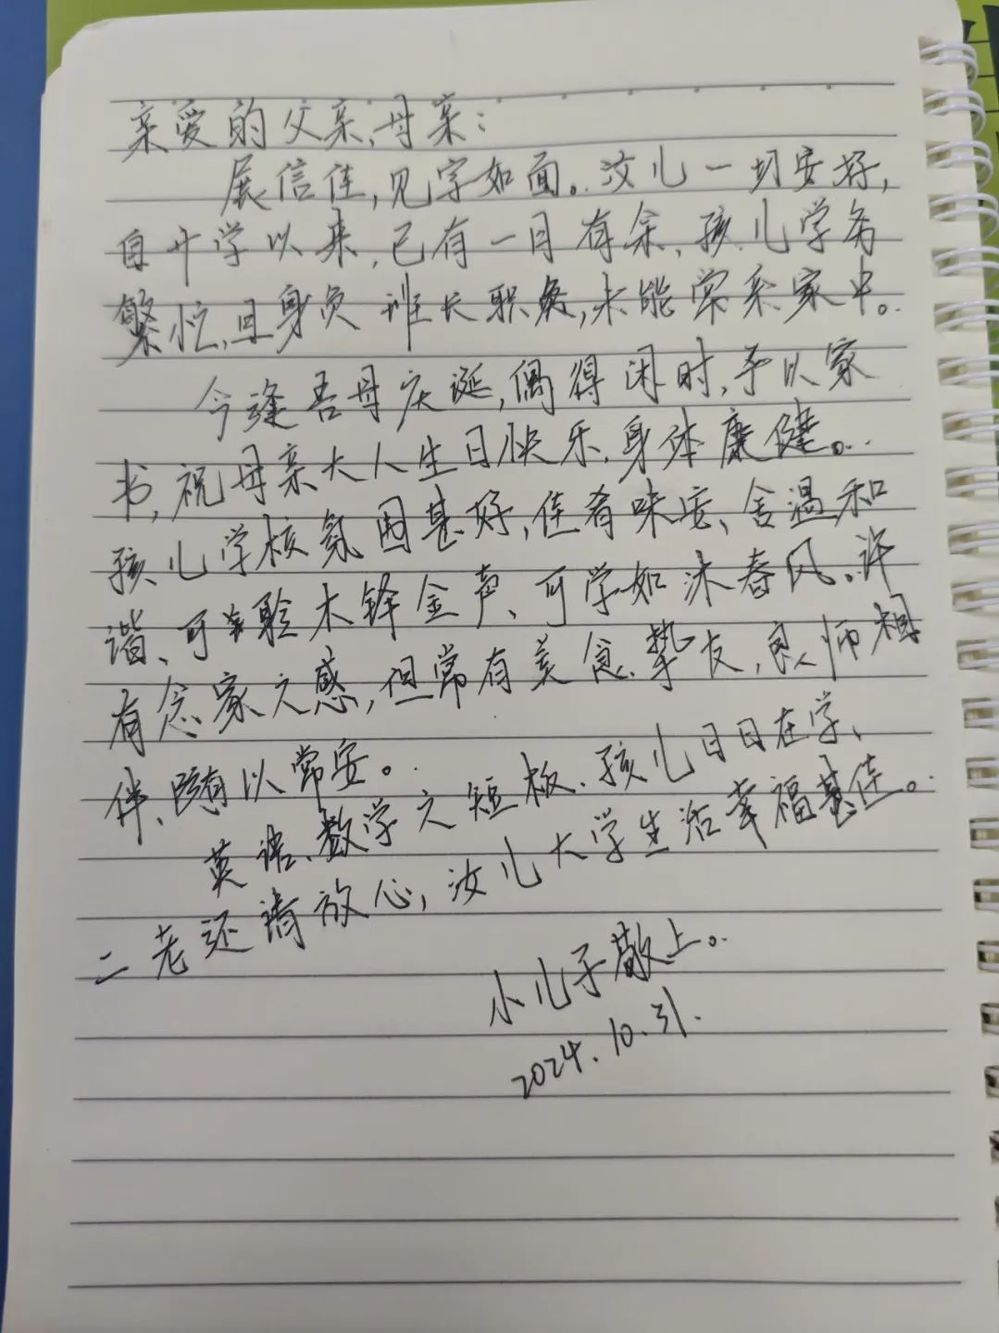 亲爱的父亲、母亲：
展信佳，见字如面。汝儿一切安好，
自开学以来，已有一月有余，孩儿学务
繁忙，且身负班长职务，未能常系家中。
今逢吾母庆诞，偶得闲时，予以家
书，祝母亲大人生日快乐，身体康健。
孩儿学校氛围甚好，佳肴味宜、舍温和
谐、可聆木铎金声、可学如沐春风。许
有念家之感，但常有美食、挚友，良师相
伴、随以常安。
英语、数学之短板、孩儿日日在学、
二老还请放心，汝儿大学生活幸福甚佳。
小儿子敬上。
2024.10.31.